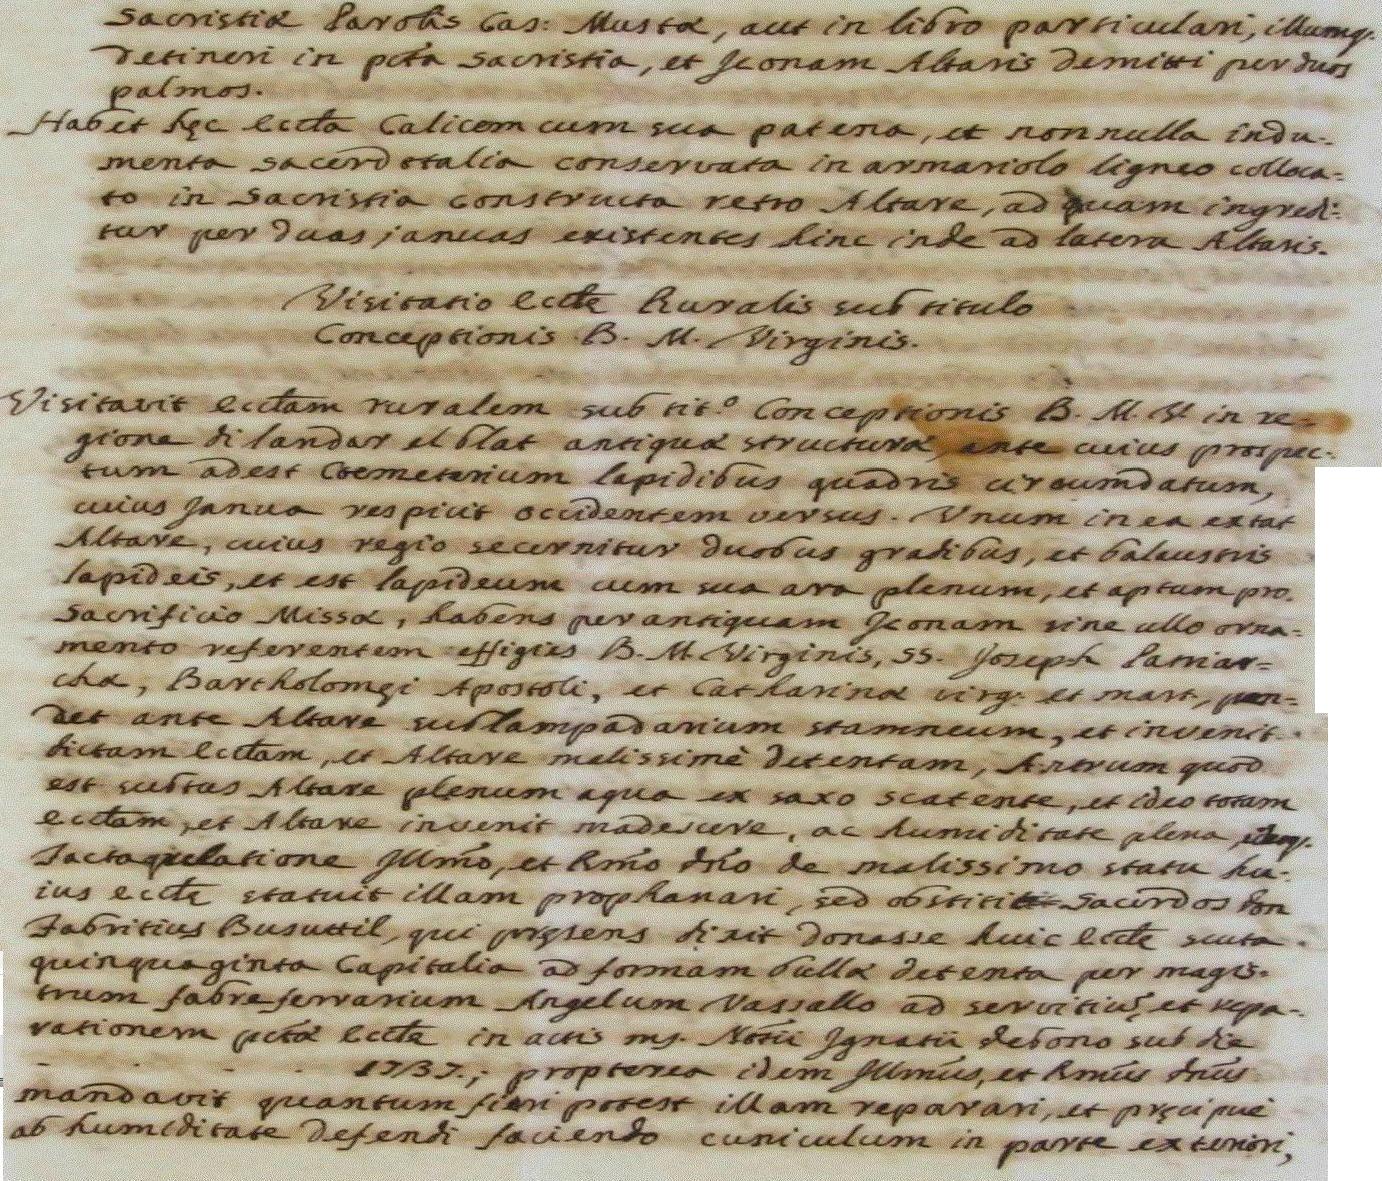 Sacristiæ Parolis Cas: Mustæ, aut in libro particulari, illumq.
detineri in pcta Sacristia, et Iconam Altaris demitti per duos
palmos.
Habet hęc Eccla Calicem cum sua patena, et nonnulla indu-
menta sacerdotalia conservata in armariolo ligneo colloca-
to in Sacristia constructa retro Altare, ad quam ingredi-
tur per duas januas existentes hinc inde ad latera Altaris.
Visitatio Ecclę Ruralis sub titulo
Conceptionis B. M. Virginis.
Visitavit Ecclam ruralem sub tit.º Conceptionis B. M. V in re-
gione di landar el blat antiquæ structuræ, ante cuius prospec-
tum adest Coemeterium lapidibus quadris circumdatum,
cuius Janua respicit occidentem versus. Unum in ea extat
Altare, cuius regio secernitur duobus gradibus, et balaustris
lapideis, et est lapideum cum sua ara plenum, et aptum pro
Sacrificio Missæ, habens perantiquam Iconam sine ullo orna-
mento referentem effigies B. M. Virginis, SS. Joseph Patriar-
chæ, Bartholomęi Apostoli, et Catharinæ virg: et mart, pen-
det ante Altare sub lampadarium stamneum, et invenit
dictam Ecclam, et Altare malissimè detentam, Antrum quod
est subtus Altare plenum aqua ex saxo scatente, et ideo totam
ecclam, et Altare invenit madescere, ac humiditate plena,
facta relatione Illmo, et Rmo dno de malissimo statu hu-
ius ecclę statuit illam prophanari, sed obstitit Sacerdos don
Fabritius Busuttil, qui pręsens dixit donasse huic Ecclę scuta
quinquaginta Capitalia ad formam bullæ detenta per magis-
trum fabreferrarium Angelum Vassallo ad servitiu, et repa-
rationem pctæ Ecclę in actis mj. Notii Ignatii debono sub die
. . . 1737.; propterea idem Illmus, et Rmus dnus
mandavit quantum fieri potest illam reparari, et pręcipue
ab humiditate defendi faciendo cuniculum in parte exteriori,